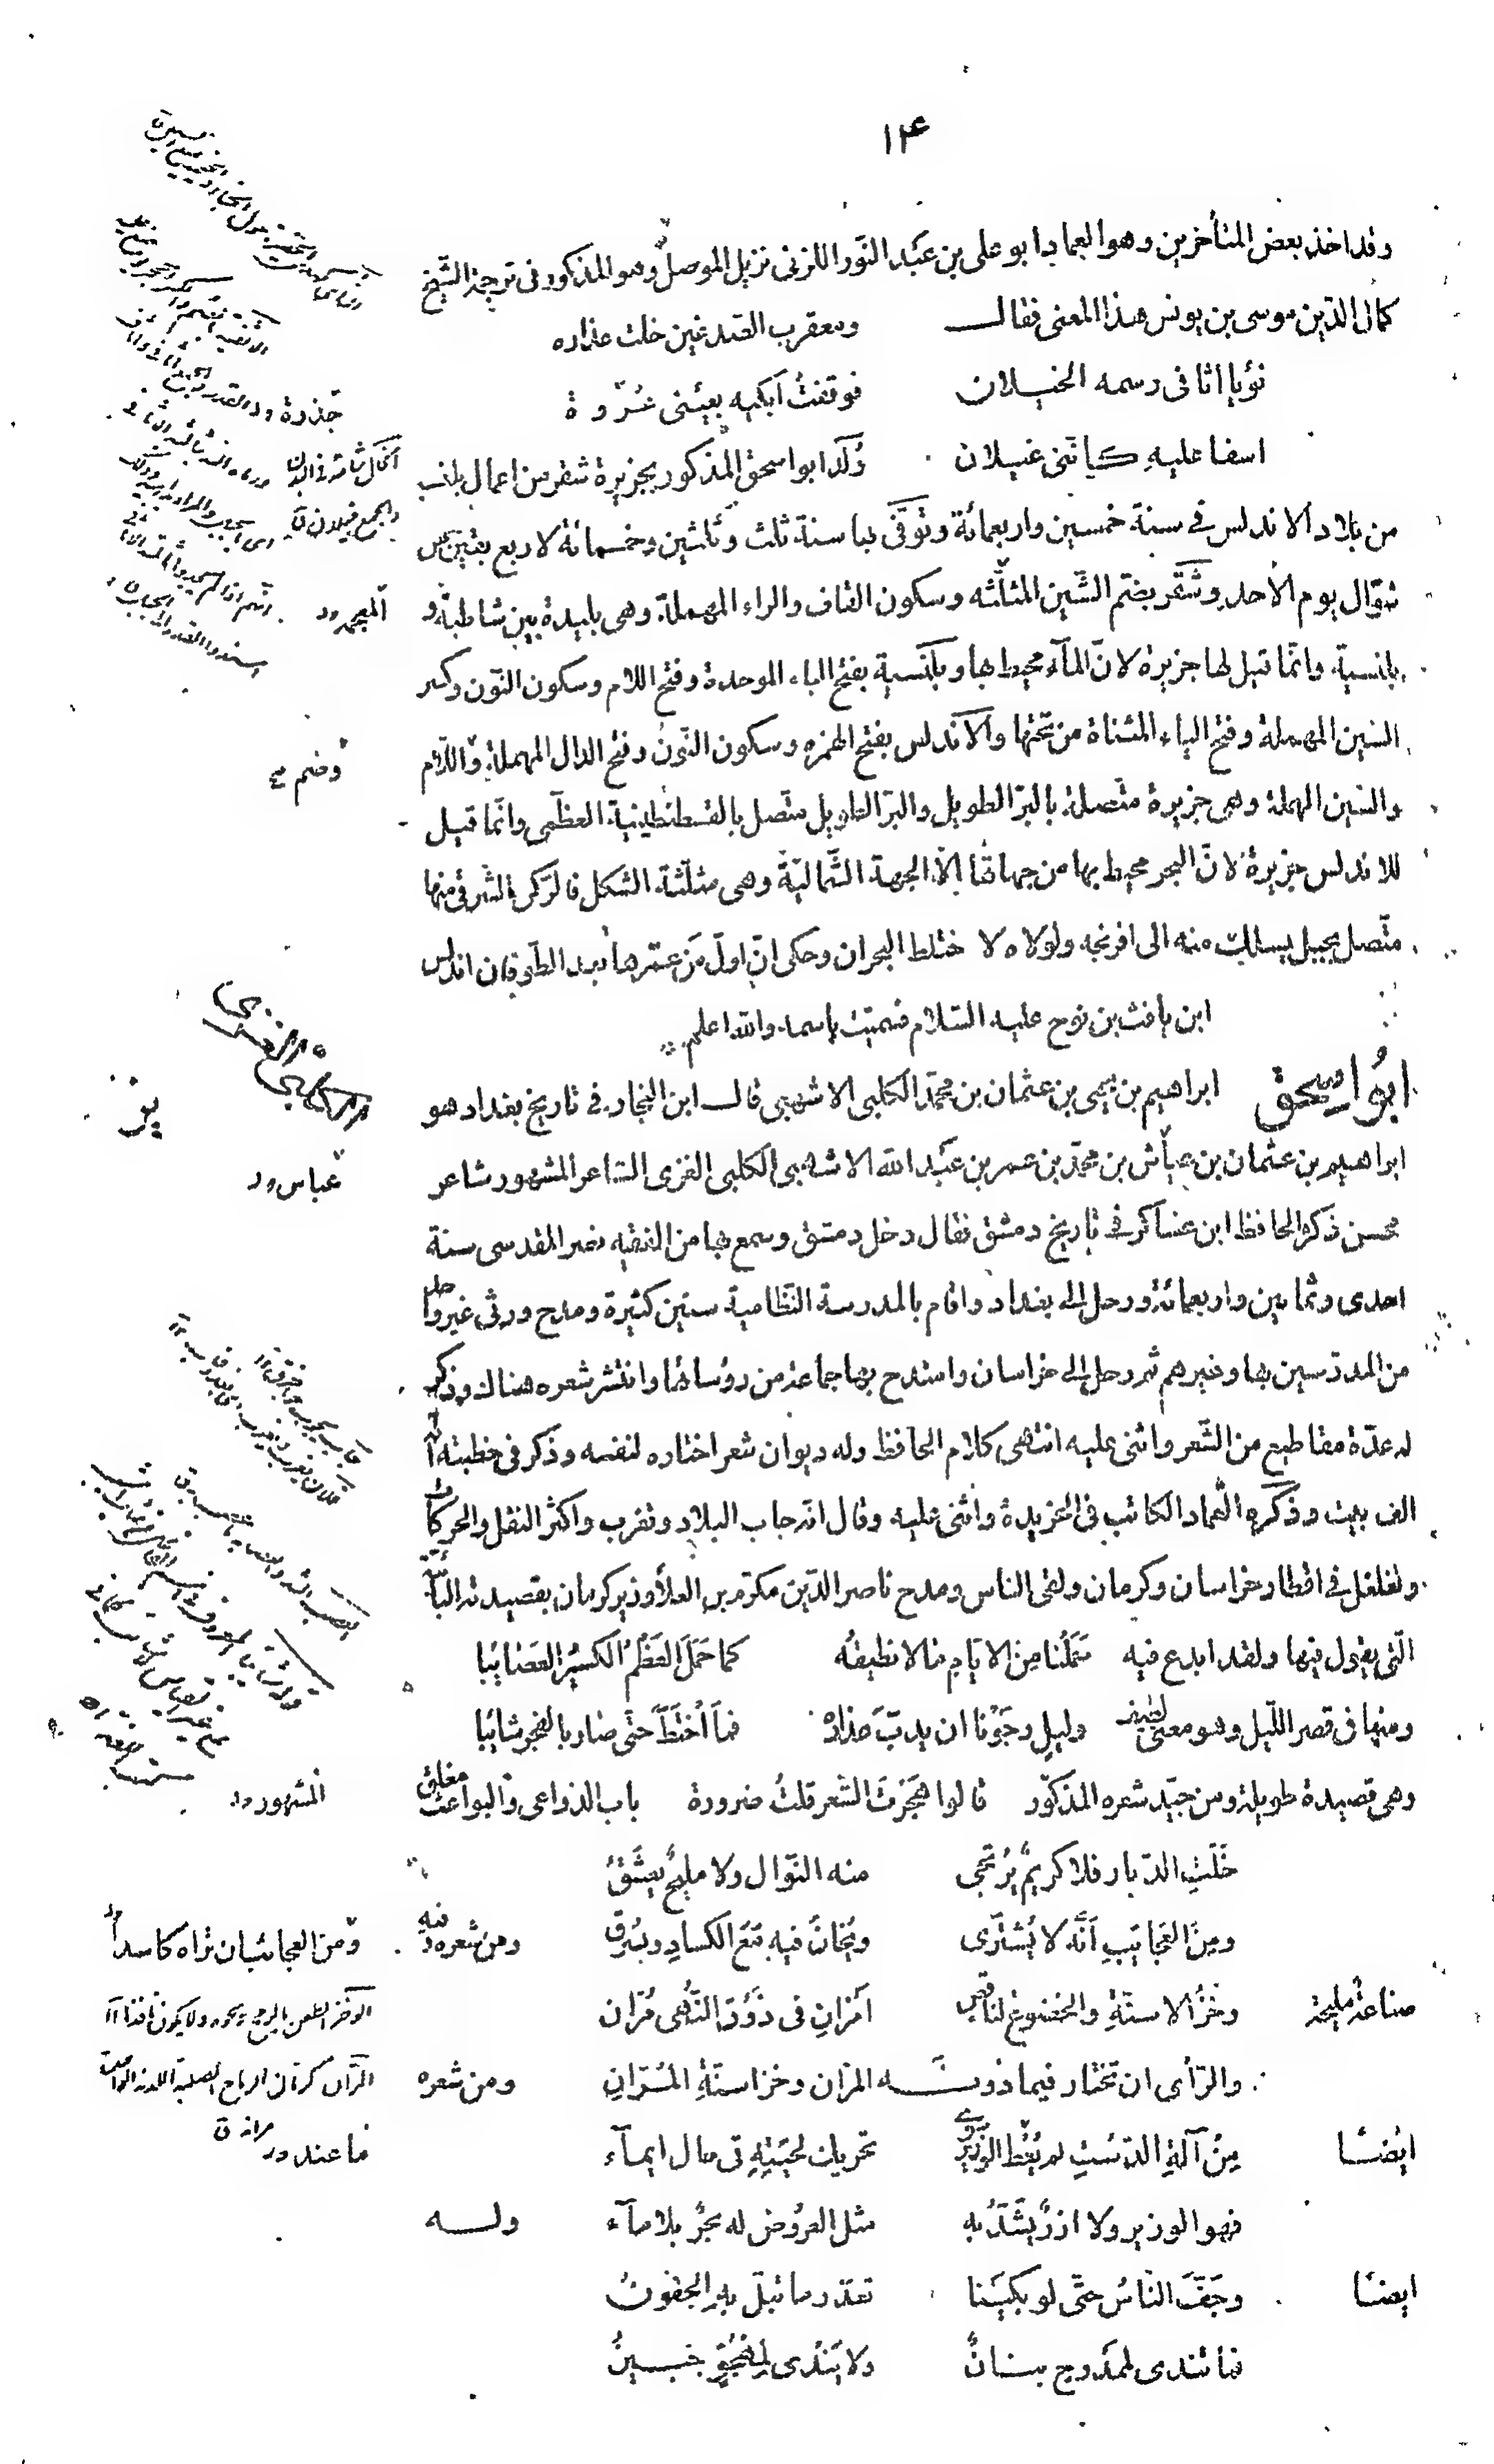 ١٤
وقد اخذ بعض المتأخرين وهو العماد ابو على بن عبد النور اللزنى نزيل الموصل وهو المذكور فى ترجمة الشيخ
كمال الدين موسى بن يونس هذا المعنى فقال ومعقرب الصدغين خلت عذاره
نؤيا اثافى رسمه الخيلان فوقفت أبكيه بعينى عروة
اسفا عليه كأننى غيلان وُلد ابو اسحق المذكور بجزيرة شقر من اعمال بلنسية
من بلاد الاندلس فى سنة خمسين واربعمائة وتوفى بها سنة ثلث وثلثين وخمسمائة لاربع بقين من
شوّال يوم الأحد وشقر بضم الشين المثلثه وسكون القاف والراء المهملة وهى بليدة بين شاطبة و
بلنسية وانّما قيل لها جزيرة لانّ المآء محيط بها وبلنسية بفتح الباء الموحدة وفتح اللام وسكون النون وكسر
السين المهملة وفتح الياء المثناة من تحتها والأندلس بفتح الهمزه وسكون النون وفتح الدال المهملة واللام
والسين المهملة وهى جزيرة متصلة بالبرّ الطويل والبرّ الطويل متصل بالقسطنطينية العظمى وانّما قيل
للاندلس جزيرة لانّ البحر محيط بها من جهاتها إلا الجهة الشمالية وهى مثلّثة الشكل فالركن الشرقى منها
متّصل بجبل يسلك منه الى افرنجه ولولاه لاختلط البحران وحكى انّ اول من عمّرها بعد الطوفان اندلس
ابن يافث بن نوح عليه السلام فسميت باسمه والله اعلم
ابو اسحق ابراهيم بن يحيى بن عثمان بن محمّد الكلبى الاشهبى قال ابن النجار فى تاريخ بغداد هو
ابراهيم بن عثمان بن عياش بن محمّد بن عمر بن عبد الله الاشهبى الكلبى الغزى الشاعر المشهور شاعر
محسن ذكره الحافظ ابن عساكر فى تاريخ دمشق فقال دخل دمشق وسمع بها من الفقيه نصر المقدسى سنة
احدى وثمانين واربعمائة ورحل الى بغداد واقام بالمدرسة النظامية سنين كثيرة ومدح ورثى غير واحد
من المدرسين بها وغيرهم ثم رحل الى خراسان وامتدح بها جماعة من رؤسائها وانتشر شعره هناك وذكر
له عدّة مقاطيع من الشعر واثنى عليه انتهى كلام الحافظ وله ديوان شعر اختاره لنفسه وذكر فى خطبته أنّه
الف بيت وذكره العماد الكاتب فى الخريدة واثنى عليه وقال انّه جاب البلاد وتغرب واكثر النقل والحركات
وتغلغل فى اقطار خراسان وكرمان ولقى الناس ومدح ناصر الدّين مكرّم بن العلا وزير كرمان بقصيدته البائية
الّتى يقول فيها ولقد ابدع فيه حملنا من الايام ما لا نطيقه كما حمل العظم الكسير العصائبا
ومنها فى قصر اللّيل وهو معنى لطيف وليل رجونا ان يدبّ عذاره فما أختطّ حتى صار بالفجر شائبا
وهى قصيدة طويلة ومن جيّد شعره المذكور قالوا هجرت الشعر قلت ضرورة باب الدواعى والبواعث مغلق
خلت الديار فلا كريم يُرتجى منه النوال ولا مليح يعشق
ومن العجائب أنّه لا يُشترى ويُخان فيه مع الكساد ويسرق ومن شعره وفيه
صناعة مليحة وخز الاسنّة والخضوع لناقص امران فى ذوق النهى مرّان
والرأى ان تختار فيما دونه المرّان وخز اسنّة المرّان ومن شعره
ايضًا من آلة الدست لم يعط الوزير سوى تحريك لحيته فى حال ايمآء
فهو الوزير ولا ازر يشدّ به مثل العروض له بحر بلا مآء وله
ايضًا وجفّ الناس حتّى لو بكينا تعذّر ما تبلّ به الجفون
فما تندى لممدوح بنان ولا يندى لمهجوّ جبين
الكلبى الغزى
وضم
عباس
المشهور
ومن العجائب ان تراه كاسدا
ما عند